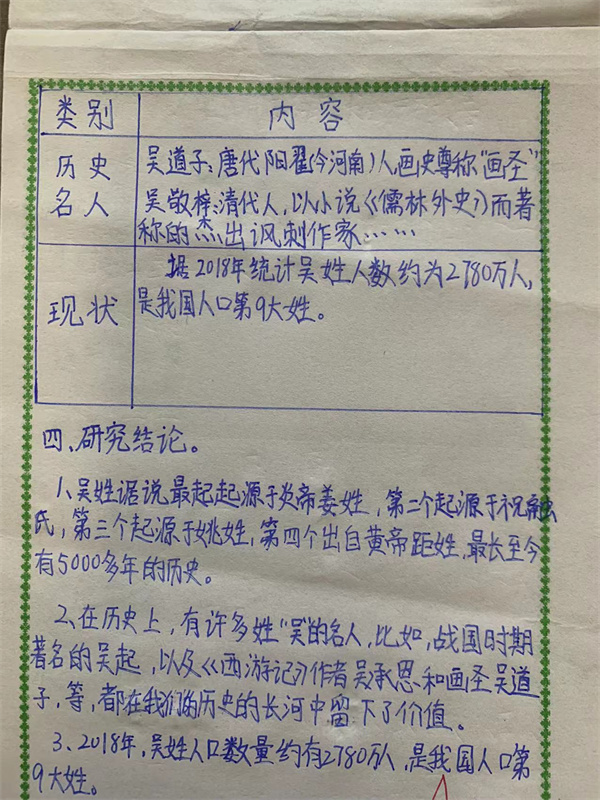 类别 内容
历史名人
吴道子:唐代阳翟(今河南)人画史尊称"画圣"
吴敬梓:清代人,以小说《儒林外史》而著
称的杰出讽刺作家……
现状
据2018年统计吴姓人数约为2780万人,
是我国人口第9大姓。
四、研究结论。
1、吴姓据说最起起源于炎帝姜姓,第二个起源于祝融
氏,第三个起源于姚姓,第四个出自黄帝距姓,最长至今
有5000多年的历史。
2、在历史上,有许多姓"吴"的名人,比如,战国时期
著名的吴起,以及《西游记》作者吴承恩和画圣吴道
子,等,都在我们的历史的长河中留下了价值。
3、2018年,吴姓人口数量约有2780万人,是我国人口第
9大姓。